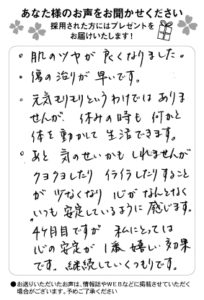 あなた様のお声をお聞かせください
採用された方にはプレゼントを
お届けいたします!
。肌のツヤが良くなりました。
。傷の治りが早いです。
。元気モリモリというわけではありま
せんが、休みの時も何かと
体を動かして生活できます。
。あと気のせいかもしれませんが
クヨクヨしたりイライラしたりすること
が少なくなり心がなんとなく
いつも安定しているように感じます。
4ヶ月目ですが私にとっては
心の安定が1番嬉しい効果
です。継続していくつもりです。
●お送りいただいたお声は、情報誌やWEBなどに掲載させていただく
場合がございます。予めご了承ください